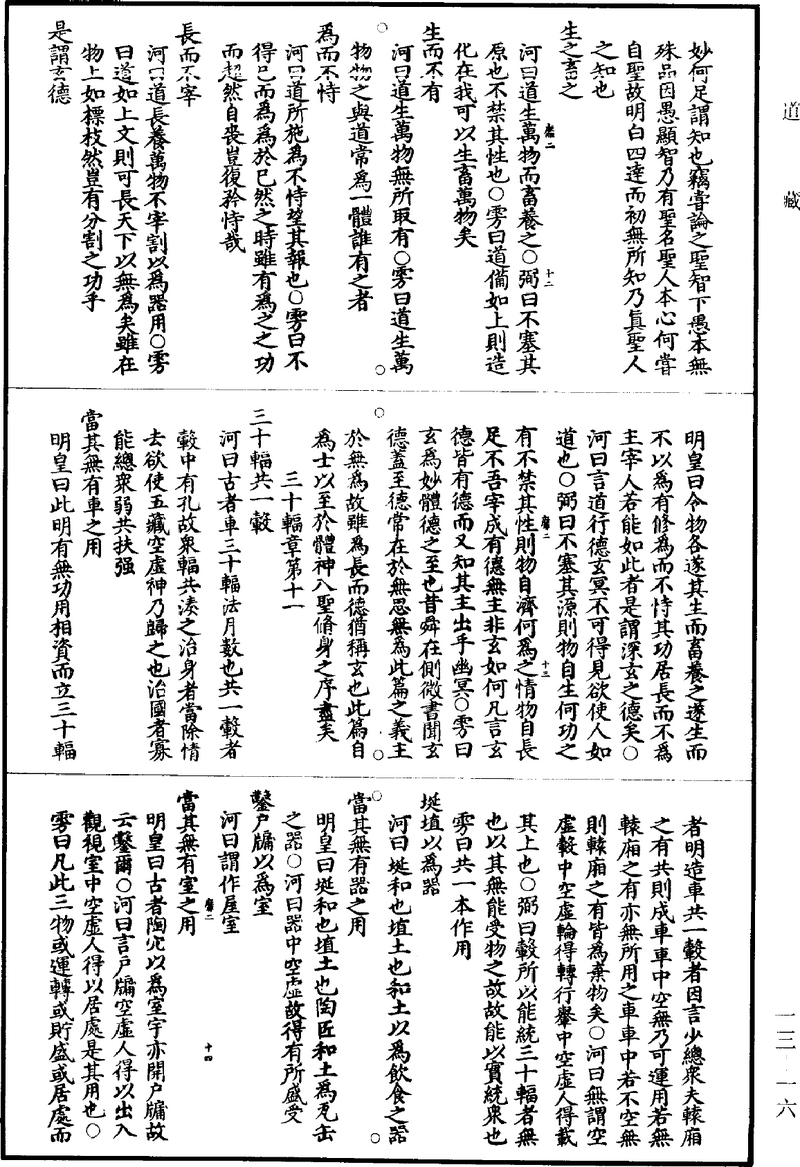 道藏
妙何足謂知也竊嘗論之聖智下愚本無
殊品因愚顯智乃有聖名聖人本心何嘗
自聖故明白四達而初無所知乃真聖人
之知也
生之畜之
河曰道生萬物而畜養之○弼曰不塞其
原也不禁其性也○雱曰道備如上則造
化在我可以生畜萬物矣
生而不有
河曰道生萬物無所取有○雱曰道生萬
物物之與道常為一體誰有之者
為而不恃
河曰道所施為不恃望其報也○雱曰不
得已而為為於已然之時雖有為之之功
而超然自喪豈復矜恃哉
長而不宰
河曰道長養萬物不宰割以為器用○雱
曰道如上文則可長天下以無為矣雖在
物上如標枝然豈有分割之功乎
是謂玄德
明皇曰令物各遂其生而畜養之遂生而
不以為有修為而不恃其功居長而不為
主宰人若能如此者是謂深玄之德矣○
河曰言道行德玄冥不可得見欲使人如
道也○弼曰不塞其源則物自生何功之
有不禁其性則物自濟何為之情物自長
足不吾宰成有德無主非玄如何凡言玄
德皆有德而又知其主出乎幽冥○雱曰
玄為妙體德之至也昔舜在側微書聞玄
德蓋至德常在於無思無為此篇之義主
於無為故雖為長而德猶稱玄也此篇自
為士以至於體神入聖脩身之序盡矣
三十輻章第十一
三十輻共一轂
河曰古者車三十輻法月數也共一轂者
轂中有孔故眾輻共湊之治身者當除情
去欲使五藏空虛神乃歸之也治國者寡
能總眾弱共扶强
當其無有車之用
明皇曰此明有無功用相資而立三十輻
者明造車共一轂者因言少總眾夫轅廂
之有共則成車車中空無乃可運用若無
轅廂之有亦無所用之車車中若不空無
則轅廂之有皆為棄物矣○河曰無謂空
虛轂中空虛輪得轉行轝中空虛人得載
其上也○弼曰轂所以能統三十輻者無
也以其無能受物之故故能以實統眾也
雱曰共一本作用
埏埴以為器
河曰埏和也埴土也和土以為飲食之器
當其無有器之用
明皇曰埏和也埴土也陶匠和土為瓦缶
之器○河曰器中空虛故得有所盛受
鑿戶牖以為室
河曰謂作屋室
當其無有室之用
明皇曰古者陶穴以為室宇亦開戶牖故
云鑿爾○河曰言戶牖空虛人得以出入
觀視室中空虛人得以居處是其用也○
雱曰凡此三物或運轉或貯盛或居處而
十二
十三
十四
一三-一六